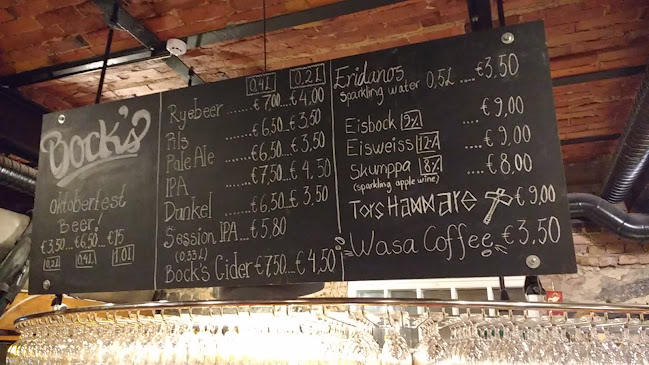 Bock's
Oktoberfest
Beer!
€3,50... €6,50... €15
0,2 L 0,4 L 1,0 L
0,4 L 0,2 L
Ryebeer ...... €7,00...€4,00
Pils ...... €6,50...€3,50
Pale Ale ...... €6,50...€3,50
IPA ...... €7,50...€4,50
Dunkel ...... €6,50...€3,50
Session IPA...€5,80
(0,33 L)
Bock's Cider €7,50...€4,50
Eridanos
Sparkling water 0,5L ....€3,50
Eisbock 9% .... €9,00
Eisweiss 12% .... €9,00
Skumppa 8% ... €8,00
(sparkling apple wine)
Tors Hammare €9,00
Wasa Coffee €3,50